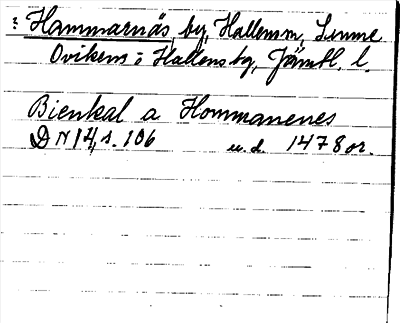 ? Hammarnäs, by, Hallen sn, Sunne
Ovikens o Hallens tg, Jämtl. l.
Bienkal a Hommanenes
DN 14, s. 106 u. d. 1478 or.